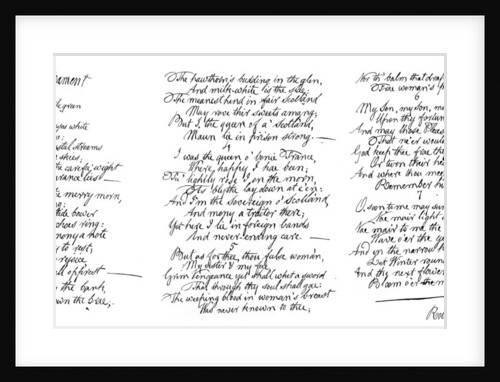 ament
green
white
crystal streams
skies;
weight
merry morn,
bower
echoes ring:
mony a note
to rest;
rejoice
opprest
the bank
down the brae;
The hawthorn's budding in the glen,
And milk-white is the slae;
The meanest hind in fair Scotland
May rove their sweets amang;
But I, the queen of a' Scotland,
Maun lie in prison strong.
4
I was the queen o' bonie France,
Where happy I hae been;
Fu' lightly rase I on the morn,
As blythe lay down at e'en:
And I'm the sovereign o' Scotland,
And mony a traitor there;
Yet here I lie in foreign bands
And never-ending care.
5
But as for thee, thou false woman,
My sister & my fae,
Grim vengeance, yet shall whet a sword
That through thy soul shall gae:
The weeping blood in woman's breast
Was never known to thee;
Nor th' balm that drap
Frae woman's
6
My son, my son, ma
Upon thy fortun
And may those pleas
That ne'er would
God keep thee frae th
Or turn their he
And where thou mee
Remember hi
O, soon to me may su
Nae mair light
Nae mair to me the
Wave o'er the ye
And in the narrow h
Let Winter roun
And the next flower
Bloom o'er the